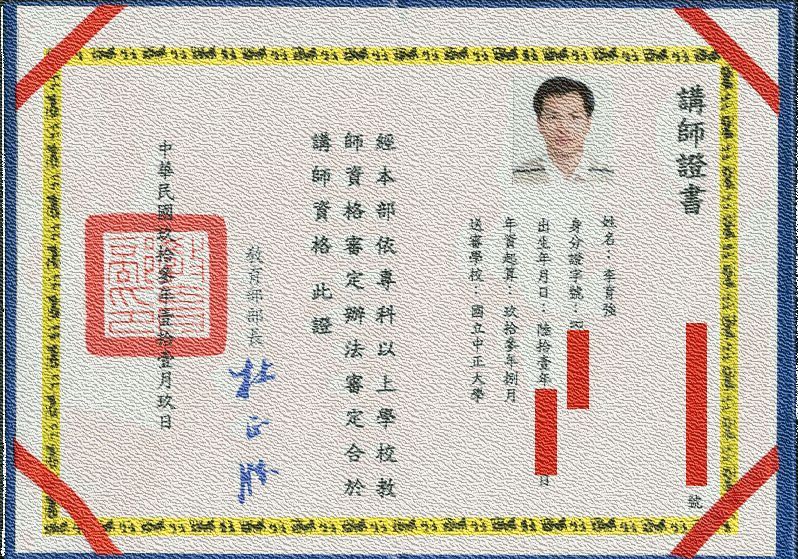 講師證書
號
姓名：李育強
身分證字號：
出生年月日：陸拾壹年
日
年資起算：玖拾參年捌月
送審學校：國立中正大學
經本部依專科以上學校教
師資格審定辦法審定合於
講師資格 此證
教育部部長
杜正勝
中華民國玖拾參年壹拾壹月玖日